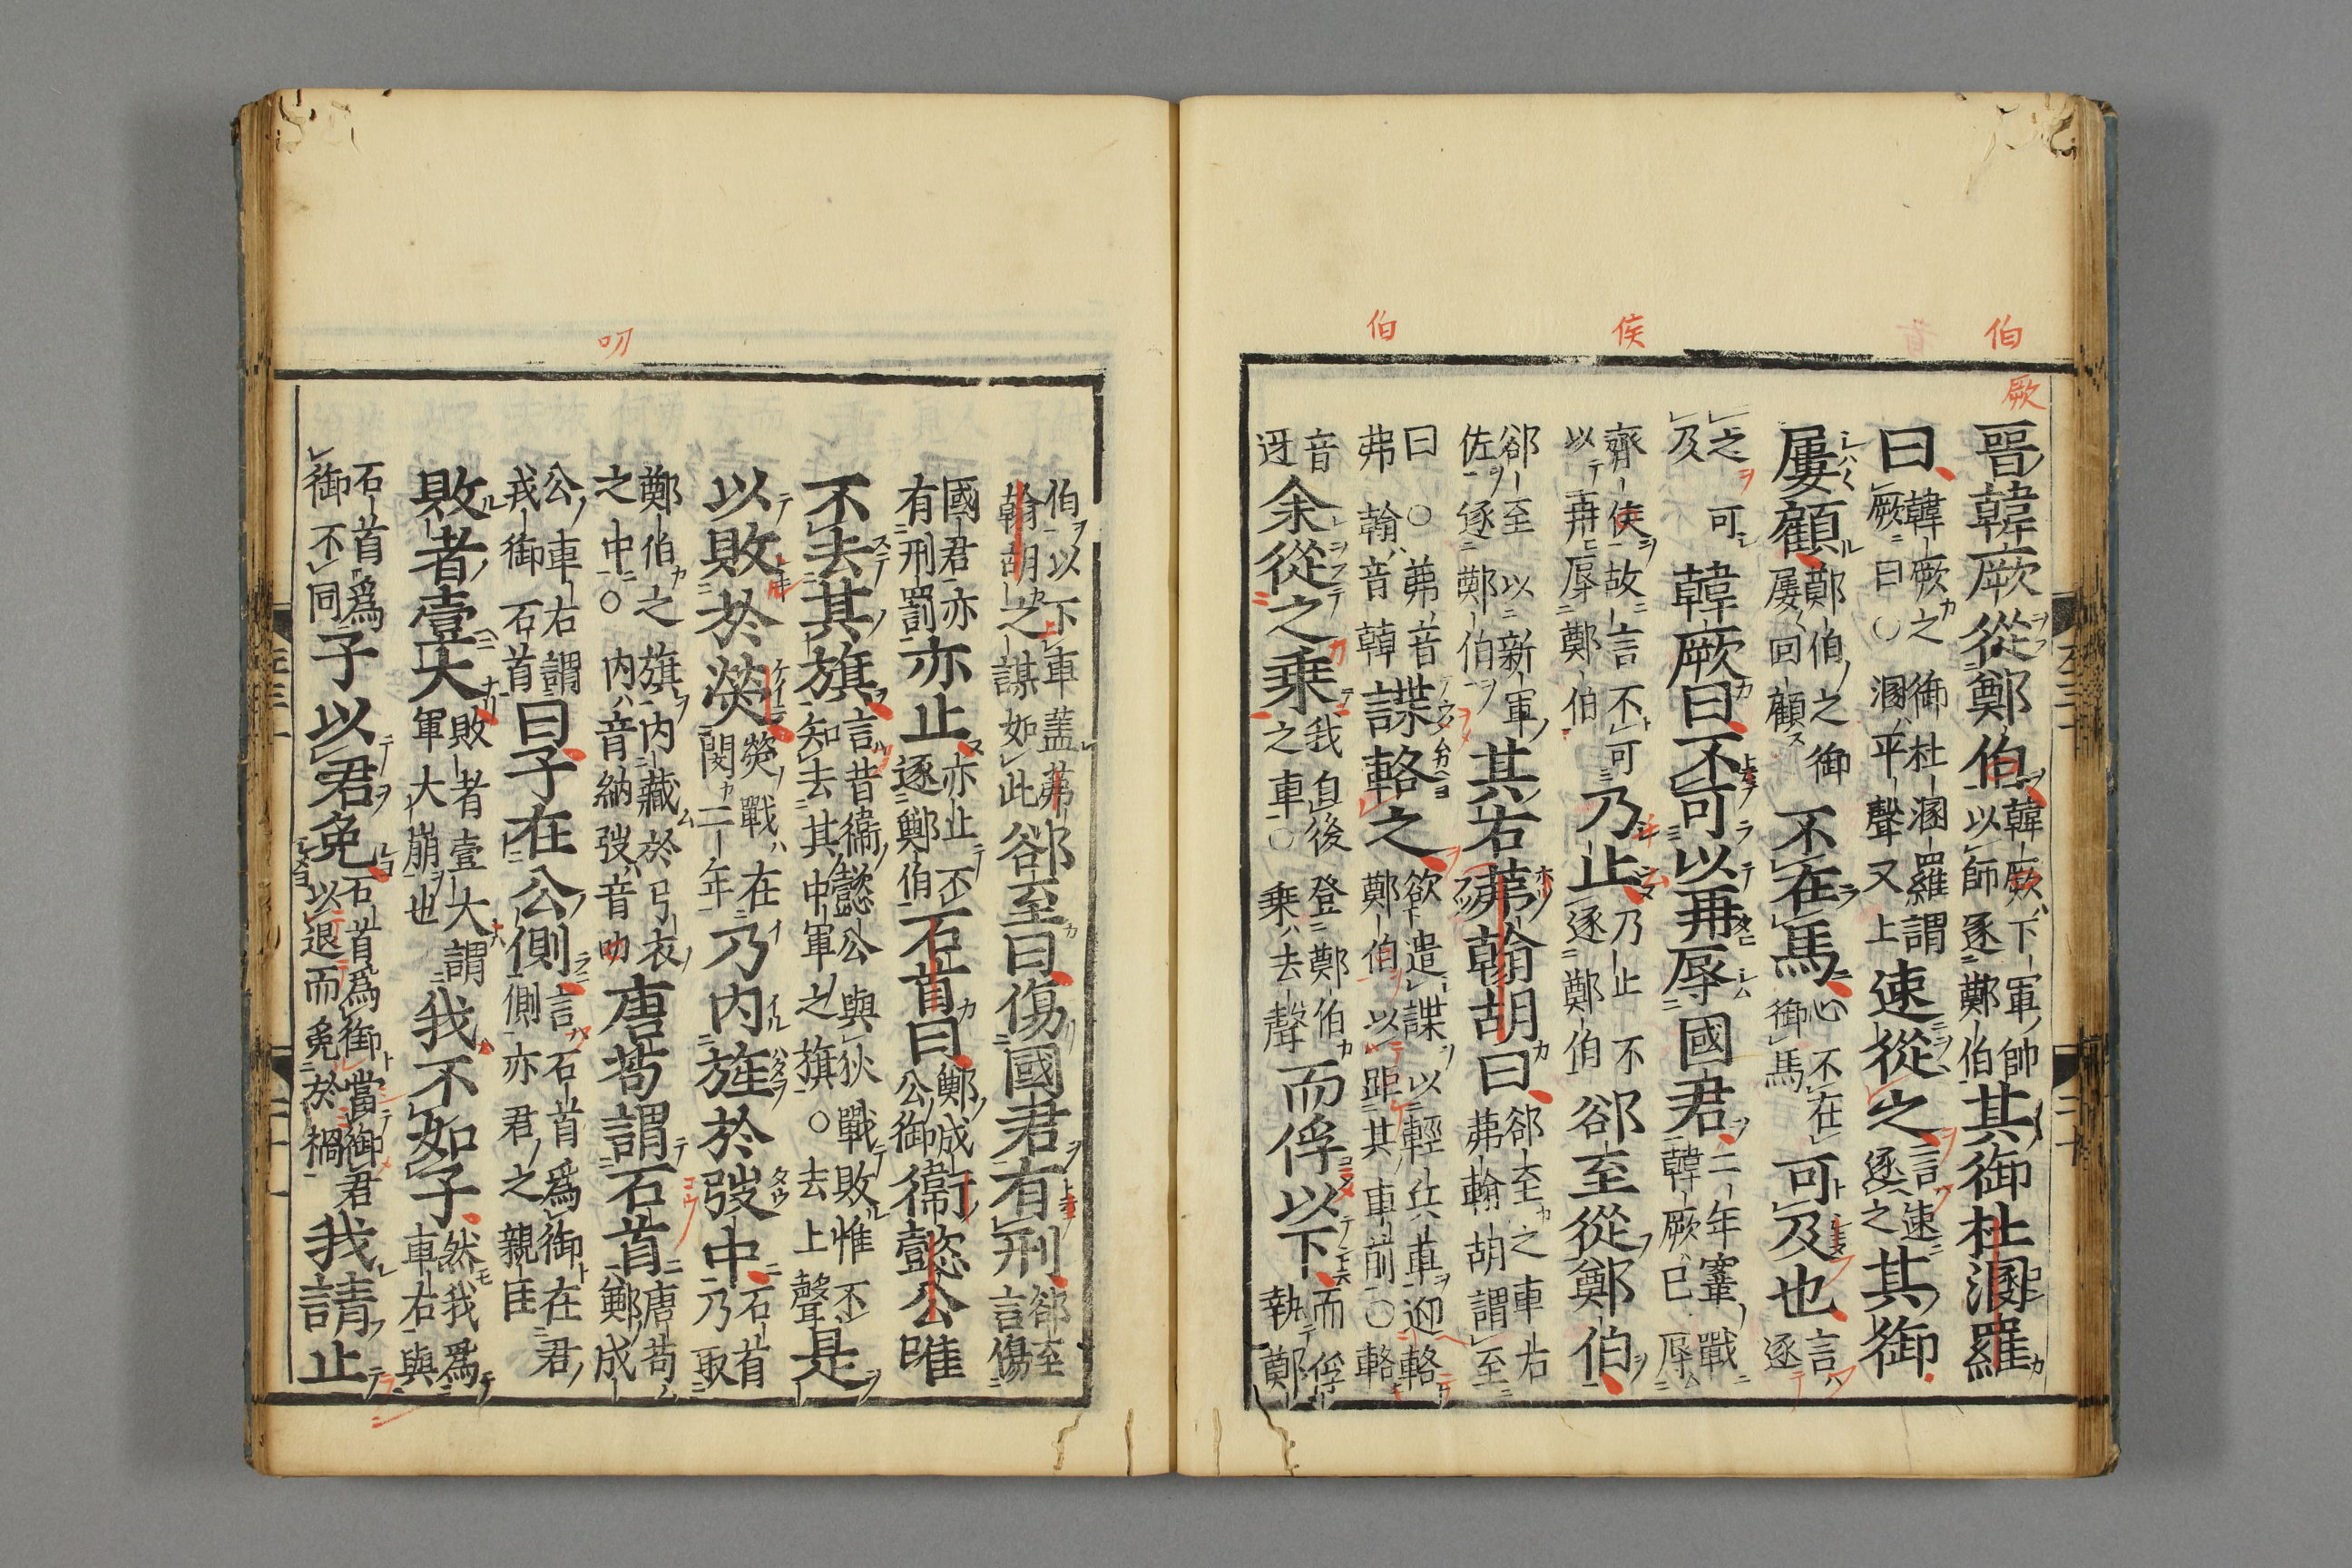 伯
侯
伯
厥
晉韓厥從鄭伯韓厥下軍帥以師逐鄭伯其御杜溷羅
曰韓厥之御杜溷羅謂厥曰○溷平聲又上速從之言速逐之其御
屢顧鄭伯之御屢回顧不在馬心不在御馬可及也言逐
之可及韓厥曰不可以再辱國君二年鞌戰韓厥已辱
齊侯故言不可以再辱鄭伯乃止乃止不逐鄭伯郤至從鄭伯
郤至以新軍佐逐鄭伯其右茀翰胡曰郤至之車右茀翰胡謂至
曰○茀音弗翰音韓諜輅之欲遣諜以輕兵車迎輅鄭伯以距其車前○輅
音迓余從之乗我自後登鄭伯之車○乗去聲而俘以下而俘執鄭
叨
伯以下車蓋茀翰胡之謀如此郤至曰傷國君有刑郤至言傷
國君亦有刑罰亦止亦止不逐鄭伯石首曰鄭成公御衞懿公唯
不去其旗言昔衞懿公與狄戰敗惟不知去其中軍之旗○去上聲是
以敗於熒熒戰在閔二年乃内旌於弢中石首乃取
鄭伯之旗内藏於弓衣之中○内音納弢音叨唐茍謂石首唐茍鄭成
公車右謂戎御石首曰子在公側言石首爲御在君側亦君之親臣
敗者壹大敗者壹大謂軍大崩也我不如子然我爲車右與
石首爲御不同子以君免石首爲御當御君以退而免於禍我請止